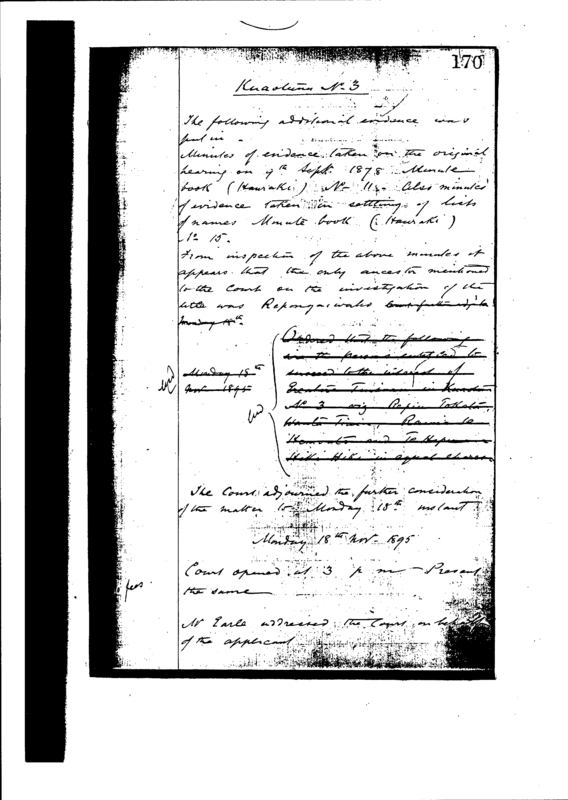 170
Kuaotunu No. 3
The following additional evidence was
put in -
Minutes of evidence taken on the original
hearing on 9th Sept. 1878 Minute
book (Hauraki) No 11. Also minutes
of evidence taken in settling of lists
of names Minute book (Hauraki)
No 15.
From inspection of the above minutes it
appears that the only ancestor mentioned
to the Court on the investigation of the
title was
Monday 18th
Ordered that the following
are the persons entitled to
succeed to the interest of
Monday 18th
Nov. 1895
in
No 3 viz
and
in equal shares
The Court adjourned the further consideration
of the matter to Monday 18th instant
Monday 18th Nov. 1895
Court opened at 3 p m - Present
the same
Mr Earle addressed the Court on behalf
of the applicant